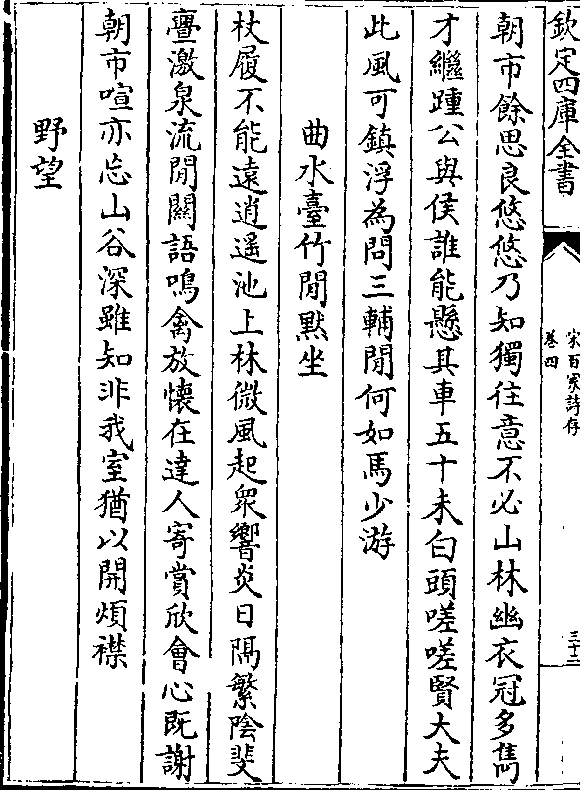 欽定四庫全書
宋百家詩存
卷四
三十二
朝市餘思良悠悠乃知獨往意不必山林幽衣冠多雋
才繼踵公與侯誰能懸其車五十未白頭嗟嗟賢大夫
此風可鎮浮為問三輔閒何如馬少游
曲水臺竹閒默坐
杖履不能遠逍遙池上林微風起衆響炎日隔繁陰斐
亹激泉流閒關語鳴禽放懷在達人寄賞欣會心既謝
朝市喧亦忘山谷深雖知非我室猶以開煩襟
野望